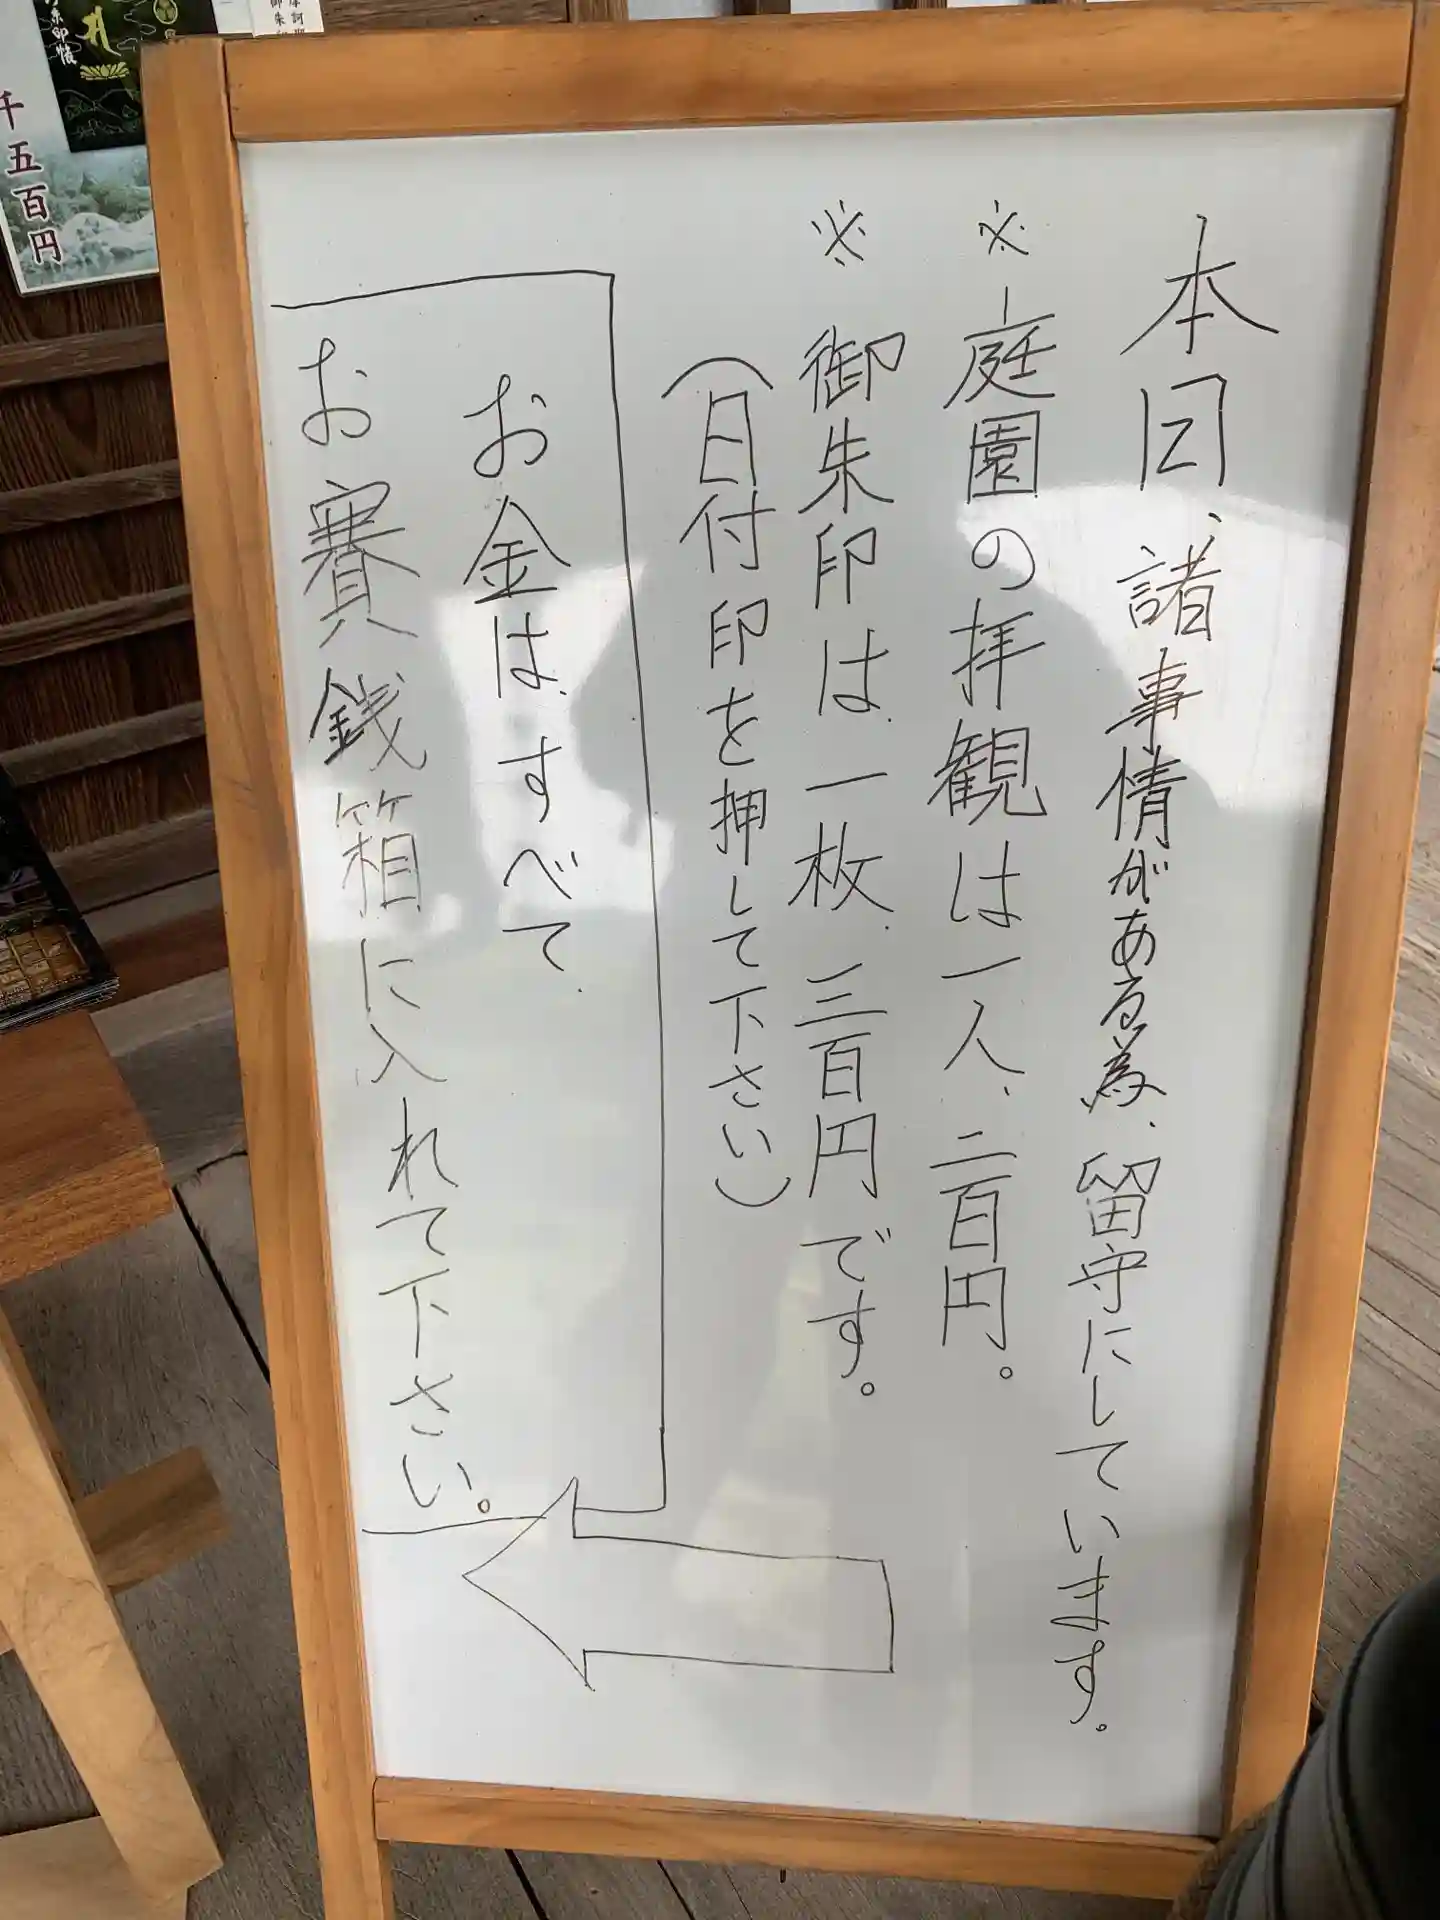 本日、諸事情がある為、留守にしています。
※庭園の拝観は一人、二百円。
※御朱印は一枚、三百円です。
(日付印を押して下さい)
お金は、すべて、
お賽銭箱に入れて下さい。
千五百円